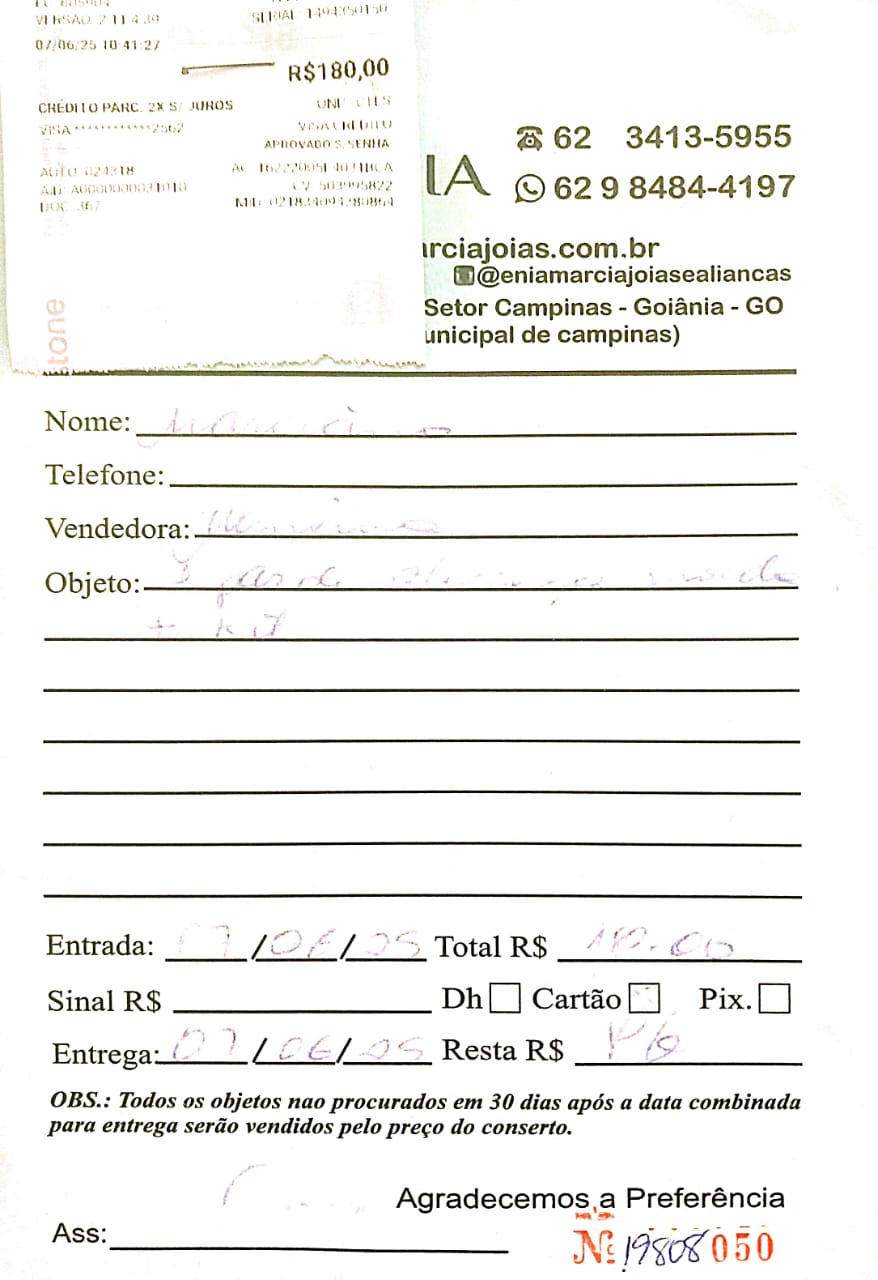 VERSÃO 2.11.4.39
SERIAL 1494350150
07/06/25 10:41:27
R$180,00
CRÉDITO PARC. 2X S/ JUROS
VISA ************2562
VISA CRÉDITO
APROVADO S/SENHA
AUTO 024318
AID A0000000031010
CV 503995822
DOC 367
stone
IA
62 3413-5955
62 9 8484-4197
rciajoias.com.br
@eniamarciajoiasealiancas
Setor Campinas - Goiânia - GO
unicipal de campinas)
Nome:
Telefone:
Vendedora:
Objeto: 1 par de alianças moeda
+ kit
Entrada: 07/06/25 Total R$ 180.00
Sinal R$ Dh Cartão Pix.
Entrega: 07/06/25 Resta R$ PG
OBS.: Todos os objetos nao procurados em 30 dias após a data combinada
para entrega serão vendidos pelo preço do conserto.
Agradecemos a Preferência
Ass:
Nº 19808 050